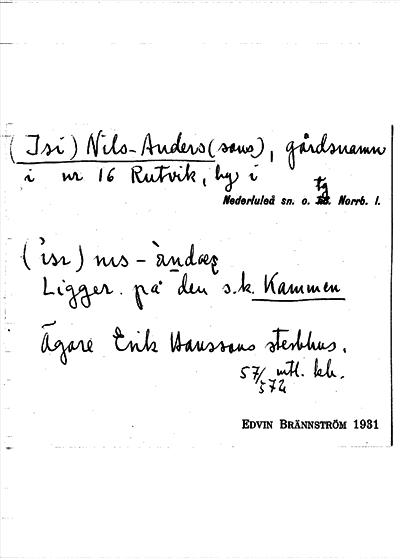 (Isi) Nils-Anders(sons), gårdsnamn
i nr 16 Rutvik, by i
tg
Nederluleå sn. o. Norrb. l.
Ligger på den s.k. Kammen
Ägare Erik Hanssons sterbhus.
57/572 mtl. kr.
EDVIN BRÄNNSTRÖM 1931